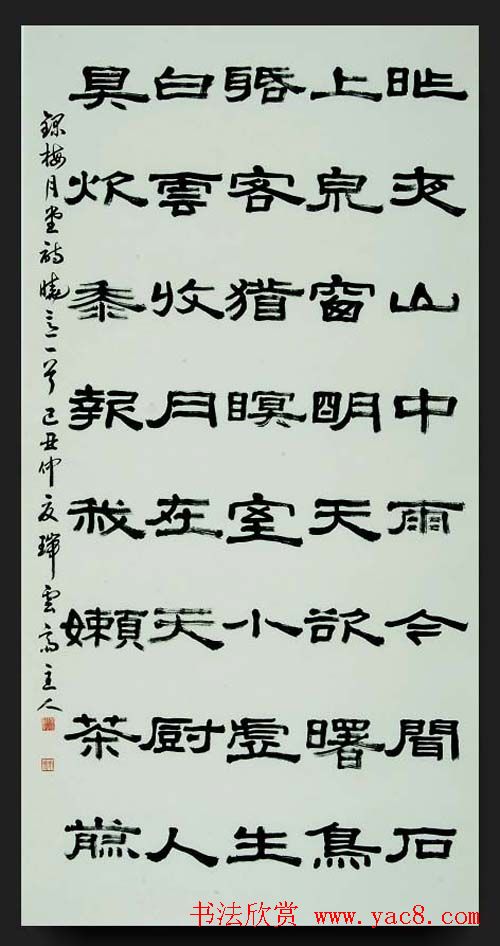 昨夜山中雨今聞石
上泉窗明天欲曙鳥
聒客猶瞑室小虛生
白雲收月在天廚人
具炊黍報我嬾茶煎
錄梅月堂詩曉意一首 己丑仲夏 雲齋主人
书法欣赏 www.yac8.com